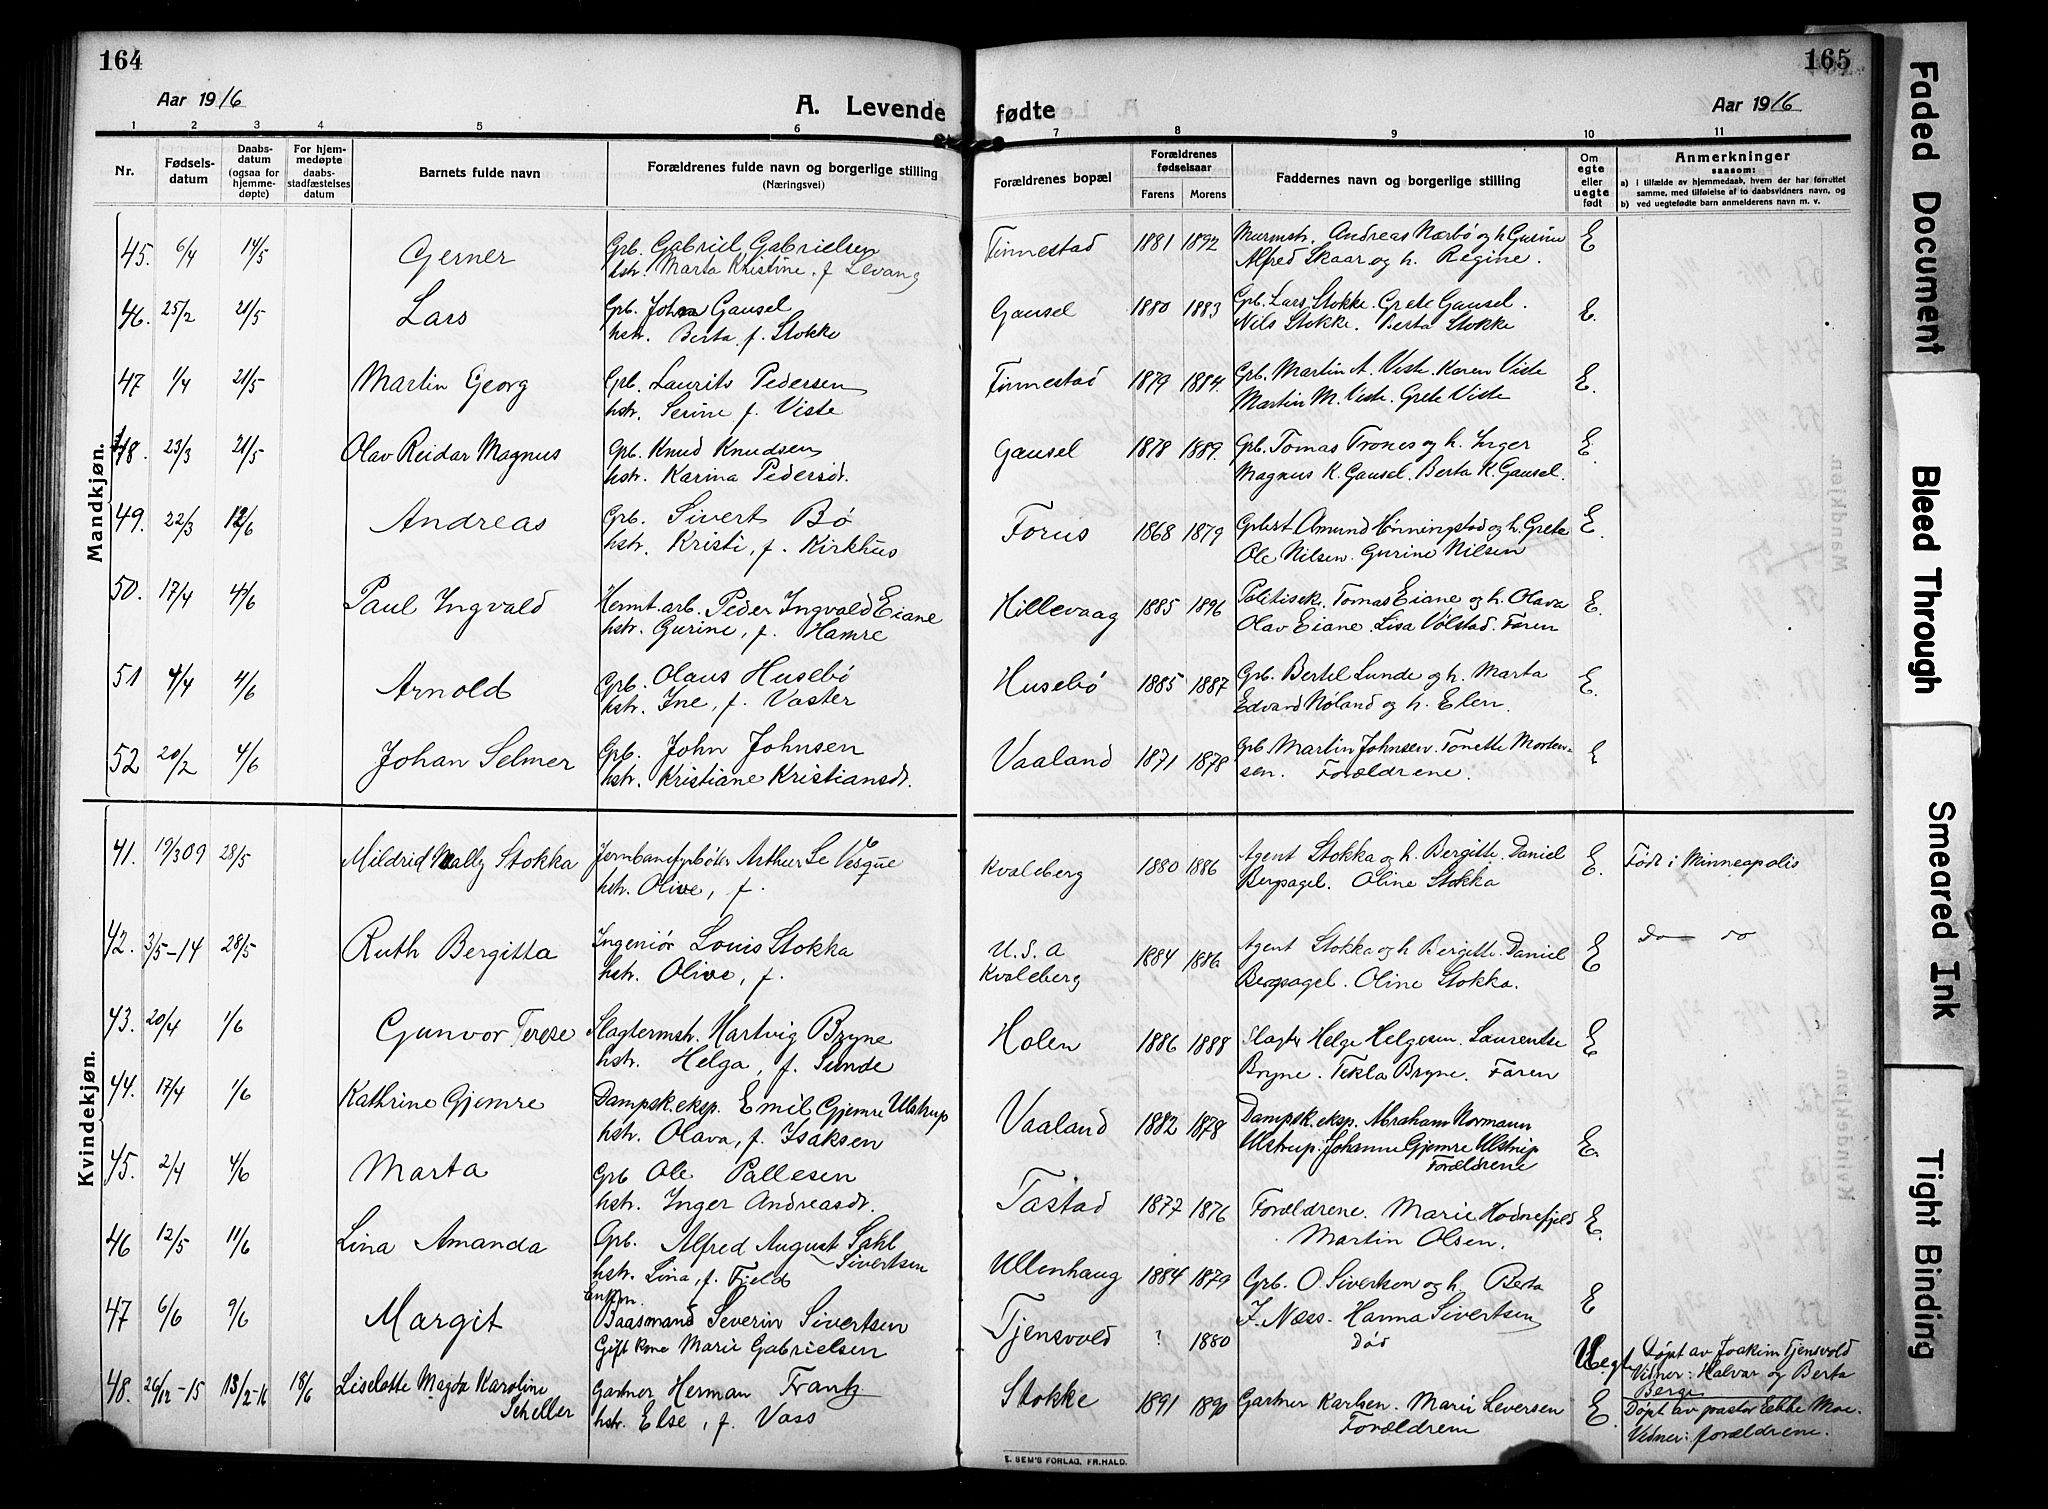 164
165
Aar 1916
A. Levende fødte
Aar 1916
1 2 3 4 5 6 7 8 9 10 11
Nr. Fødsels-datum Daabs-datum (ogsaa for hjemme-døpte) For hjem-medøpte daabs-stadfæstelses datum Barnets fulde navn Forældrenes fulde navn og borgerlige stilling (Næringsvei) Forældrenes bopæl Forældrenes fødselsaar Farens Morens Faddernes navn og borgerlige stilling Om egte eller uegte født Anmerkninger saasom: a) i tilfælde av hjemmedaab, hvem der har forrettet samme, med tilføielse af to daabsvidners navn, og b) ved uegtefødte barn anmelderens navn m. v.
Mandkjøn.
45. 6/4 14/5 Gerner Grb. Gabriel Gabrielsen Finnestad 1881 1892 Murmstr. Andreas Nærbø og h. Gurine E
hstr. Marta Kristine, f. Levang Alfred Skaar og h. Regine.
46. 25/2 21/5 Lars Grb. John Gausel Gausel 1880 1883 Grb. Lars Stokke. Grete Gausel. E.
hstr. Berta f. Stokke Nils Stokke. Berta Stokke
47 1/4 21/5 Martin Georg Grb. Laurits Pedersen Finnestad 1879 1884. Grb. Martin A. Viste. Karen Viste E.
hstr. Serine f. Viste Martin M. Viste. Grete Viste
48. 23/3 21/5 Olav Reidar Magnus Grb. Knud Knudsen Gausel 1878 1889. Grb. Tomas Trones og h. Inger E.
hstr. Karina Pedersdt. Magnus K. Gausel. Berta K. Gausel.
49. 22/3 12/6 Andreas Grb. Sivert Bø Forus 1868 1879 Grbest. Amund Hønningstad og h. Grete E.
hstr. Kristi, f. Kirkhus Ole Nilsen. Gurine Nilsen
50. 17/4 4/6 Paul Ingvald Hermt.arb. Peder Ingvald Eiane Hillevaag 1885 1896 Politisek. Tomas Eiane og h. Olava E.
hstr. Gurine, f. Hamre Olav Eiane. Lisa Vølstad. Faren
51 4/4 4/6 Arnold Grb. Olaus Husebø Husebø 1885 1887 Grb. Bertel Lunde og h. Marta E.
hstr. Ine, f. Vaster Edvard Nøland og h. Elen.
52 20/2 4/6 Johan Selmer Grb. John Johnsen Vaaland 1871 1878 Grb. Martin Johnsen. Tonette Morten- E
hstr. Kristiane Kristiansdt. sen. Forældrene.
Kvindekjøn.
41. 19/3 09 28/5 Mildrid Nally Stokka Jernbanefyrbøter Arthur Le Vesque Kvaleberg 1880 1886 Agent Stokka og h. Bergitte. Daniel E. Født i Minneapolis
hstr. Olive, f. Bergsagel. Oline Stokka
42. 3/5-14 28/5 Ruth Bergitta Ingeniør Louis Stokka U.S.A 1884 1886 Agent Stokka og h. Bergitte. Daniel E Do do
hstr. Olive, f. Kvaleberg Bergsagel. Oline Stokka.
43. 20/4 1/6 Gunvor Terese Slagtermstr. Hartvig Bryne Holen 1886 1888 Slagter Helge Helgesen. Laurentse E
hstr. Helga, f. Sunde Bryne. Tekla Bryne. Faren
44. 17/4 1/6 Kathrine Gjemre Dampsk.eksp. Emil Gjemre Ulstrup Vaaland 1882 1878 Dampsk.eksp. Abraham Normann
hstr. Olava, f. Isaksen Ulstrup. Johanne Gjemre Ulstrup E.
Forældrene
45. 2/4 4/6 Marta Grb Ole Pallesen Tastad 1877 1876 Forældrene. Marie Hodnefjeld E.
hstr. Inger Andreasdt. Martin Olsen.
46 12/5 11/6 Lina Amanda Grb. Alfred August Sakl Sivertsen Ullenhaug 1884 1879 Grb. O. Sivertsen og h. Berta E
hstr. Lina, f. Fjeld J. Næss. Hanna Sivertsen
47 6/6 9/6 Margit Enkm. Baasmand Severin Sivertsen Tjensvold ? 1880 Død Uegte Døpt av Joakim Tjensvold
Gift kone Marie Gabrielsen Vidner: Halvar og Berta Berge
48. 26/12-15 13/2-16 18/6 Liselotte Magda Karoline Scheller Gartner Herman Frantz Stokke 1891 1890 Gartner Karlsen. Marie Seversen E. Døpt av pastor Ebbe Moe.
hstr. Else, f. Vass Forældrene Vidner: forældrene.
E. SEM'S FORLAG, FR.HALD.
Faded Document
Bleed Through
Smeared Ink
Tight Binding